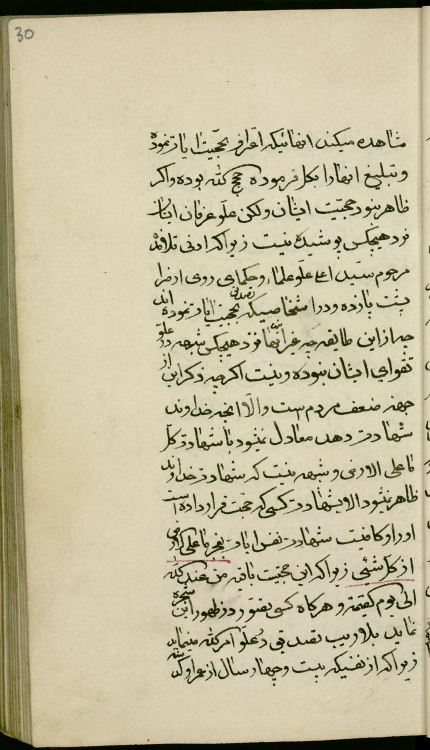 30
مشاهده میکند انهائیکه اعتراف بحجیت ایات نموده
و تبلیغ انها را بکل فرموده حجج لله بوده و اگر
ظاهر نبود حجیت ایشان ولکن علو عرفان ایشان
نزد هیچکس پوشیده نیست زیرا که ادنی تلامذه
مرحوم سید اعلی علو علماء و حکمای روی ارض را
پشت پا زده و در اشخاصیکه تصدیق بحجیت ایات نموده اند
چه از این طایفه چه غیر انها نزد هیچکس شبهه در علو
تقوای ایشان نبوده و نیست اگرچه ذکر این از
جهة ضعف مردم است والا انچه خداوند
شهادت دهد معادل نمیشود با شهادت کل
ما علی الارض و شبهه نیست که شهادت خداوند
ظاهر نمیشود الا بشهادت کسی که حجت قرار داده است
او را و کافیست شهادت نفس ایات بعجز ما علی الارض
از کل شیئی زیرا که این حجیت باقیه من عند الله
الی یوم القیمة و هرگاه کسی تصور در ظهور این شجره
نماید بلا ریب تصدیق در علو امر الله مینماید
زیرا که از نفسیکه بیست و چهار سال از عمر او گذشته